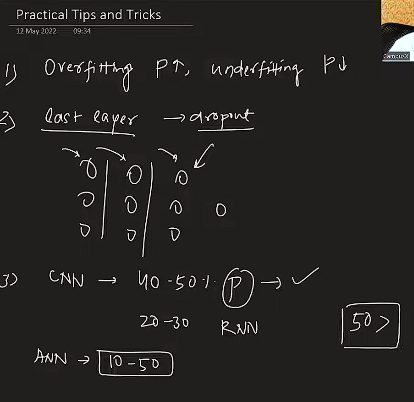 Practical Tips and Tricks
12 May 2022 09:34
CampusX
1) Overfitting P↑, underfitting P↓
2) last layer → dropout
3) CNN → 40-50% P → ✓
20-30 RNN
50 >
ANN → 10-50